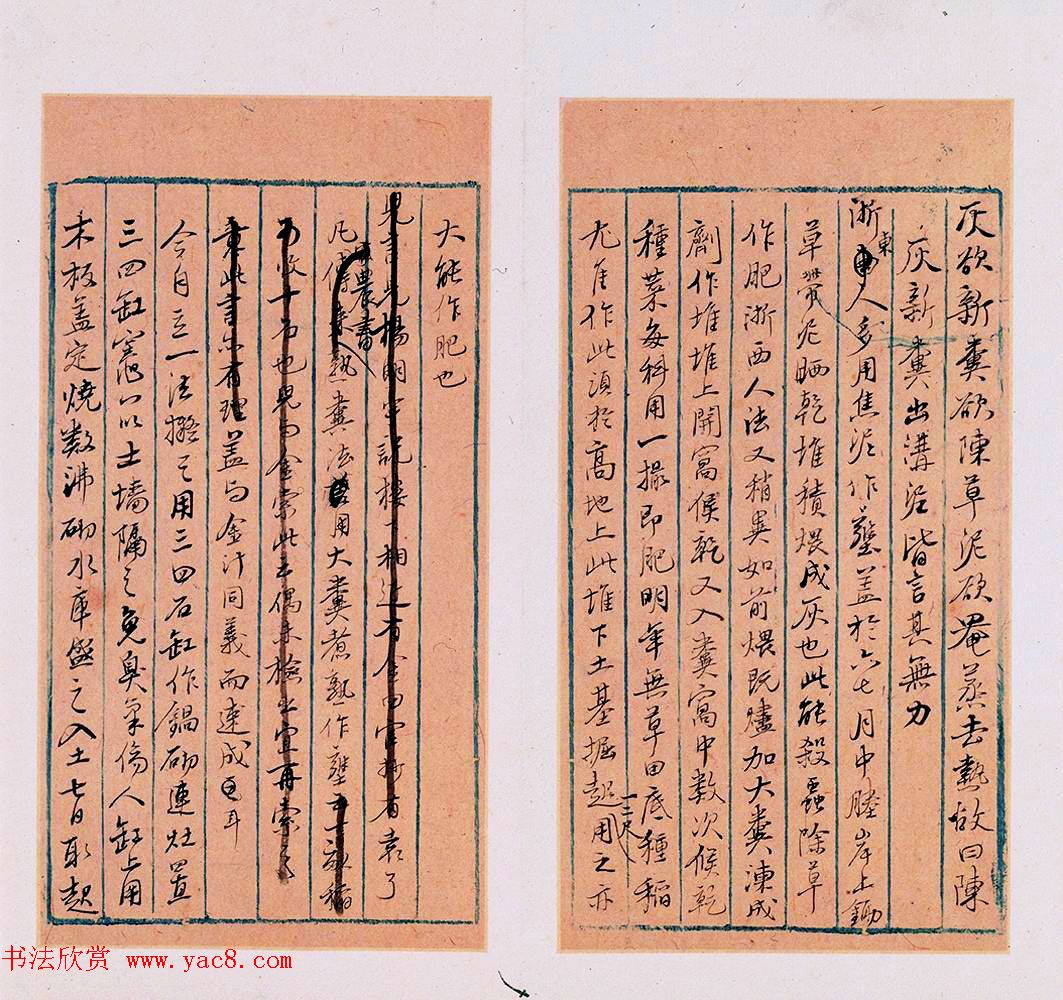 灰欲新糞欲陳草泥欲罨蒸去熱故曰陳
灰新糞出溝泥皆言其無力
浙東人多用焦泥作壅蓋於六七月中塍岸上鋤
草帶泥晒乾堆積煨成灰也此能殺蟲除草
作肥浙西人法又稍異如前煨既燼加大糞湅成
劑作堆堆上開窩候乾又入糞窩中数次候乾
種菜每科用一撮即肥明年無草田底種稲
尤佳作此須於高地上此堆下土基掘起一二尺用之亦
大能作肥也
見言楊明宇説樓一相近有金
凡傳来農書熟糞法用大糞煮熟作壅
收十石也見与金索此云偶未檢出宜再索
此言亦有理蓋与金汁同義而速成耳
今自立一法擬之用三四石缸作鍋砌連灶置
三四缸竈以土墻隔之免臭氣傷人缸上用
木板盖定燒数沸砌水庫盛之入土七日取起
书法欣赏 www.yac8.com